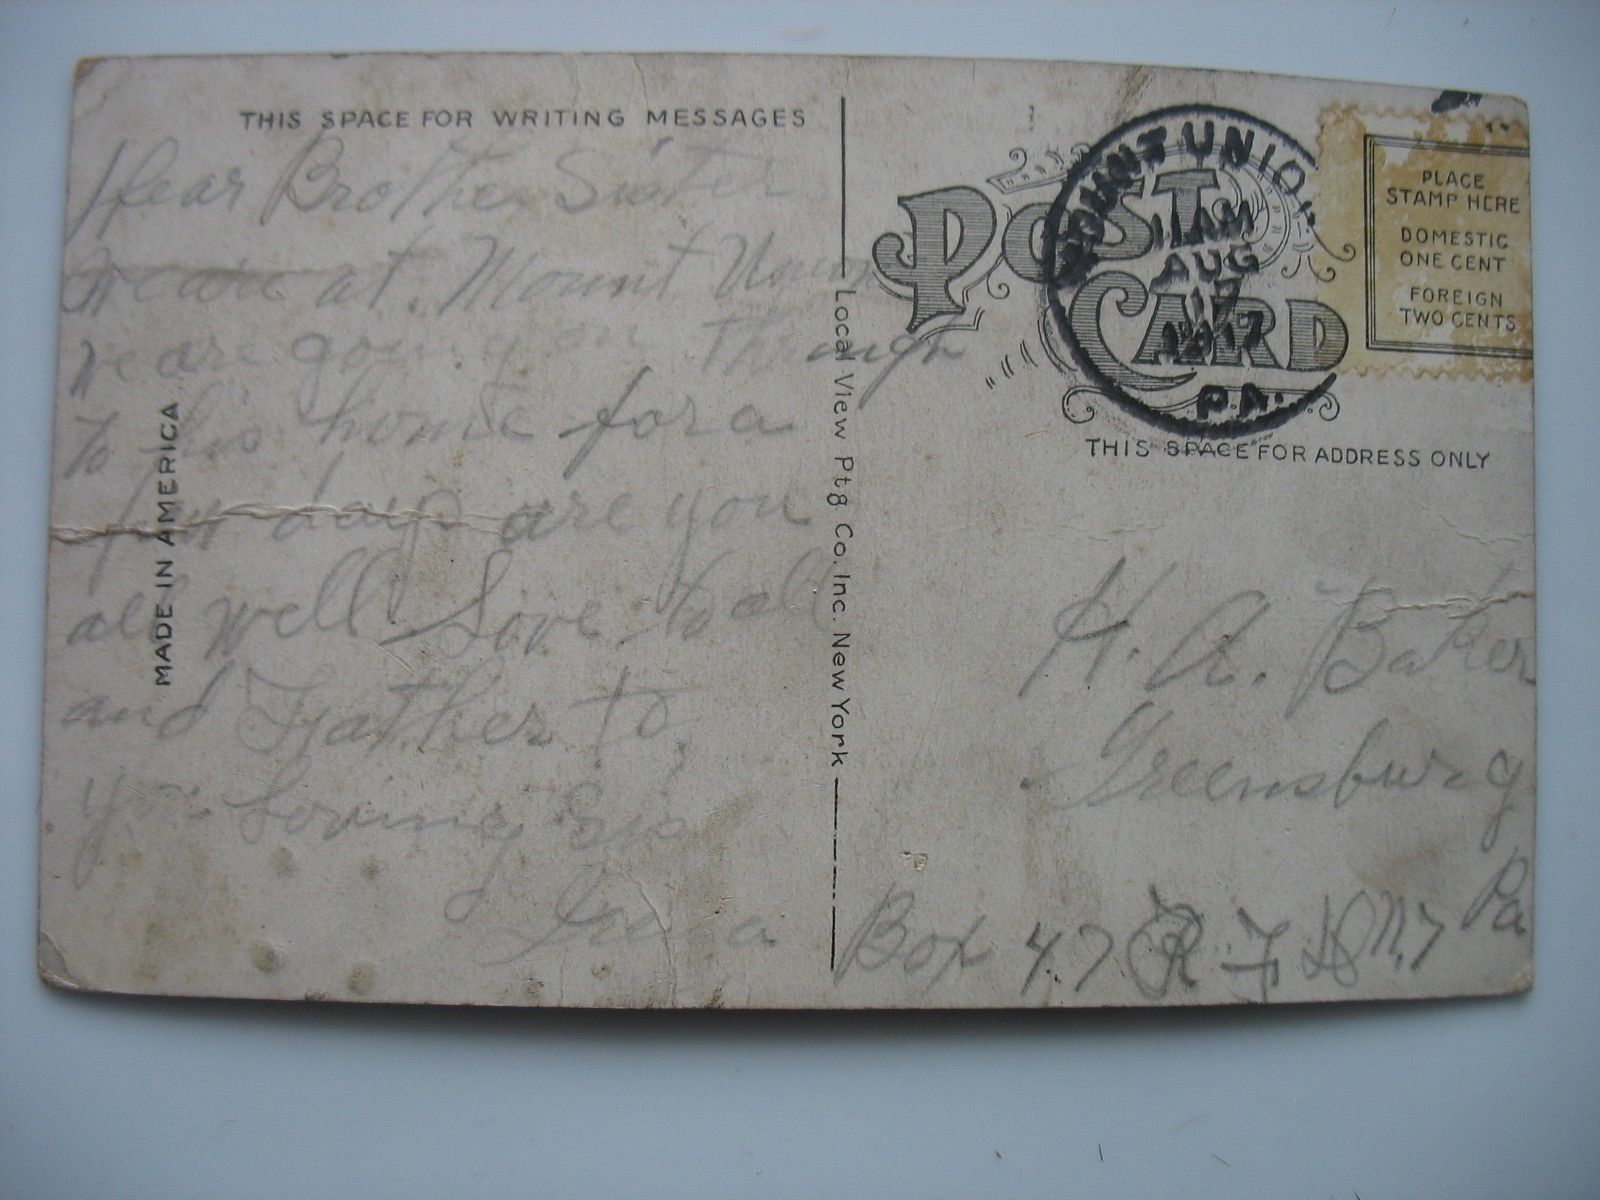 THIS SPACE FOR WRITING MESSAGES
Dear Brother Sister
We are at. Mount Union
We are going on through
to his home for a
few days are you
all well Love to all
and Father to
your loving Sis
MADE IN AMERICA
Local View Ptg. Co. Inc. New York
POST
CARD
MOUNT UNION
11 AM
AUG
17
PA.
PLACE
STAMP HERE
DOMESTIC
ONE CENT
FOREIGN
TWO CENTS
THIS SPACE FOR ADDRESS ONLY
H. A. Baker
Greensburg
Pa
Box 47 R. F. D. N. 7